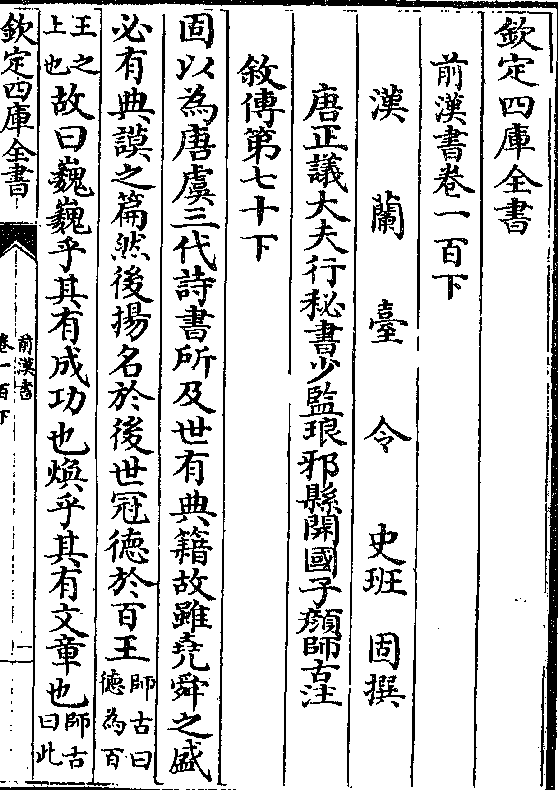 欽定四庫全書
前漢書卷一百下
漢蘭臺令史班固撰
唐正議大夫行秘書少監琅邪縣開國子顔師古注
敘傳第七十下
固以為唐虞三代詩書所及世有典籍故雖堯舜之盛
必有典謨之篇然後揚名於後世冠德於百王師古曰德為百
王之上也故曰巍巍乎其有成功也煥乎其有文章也師古曰此
欽定四庫全書
前漢書
卷一百下
一